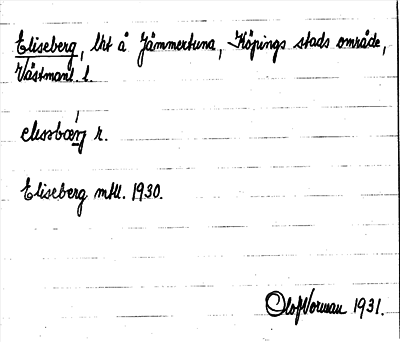 Eliseberg, lht å Jämmertuna, Köpings stads område,
Västmanl. l.
r.
Eliseberg mtl. 1930.
Olof Norman 1931.